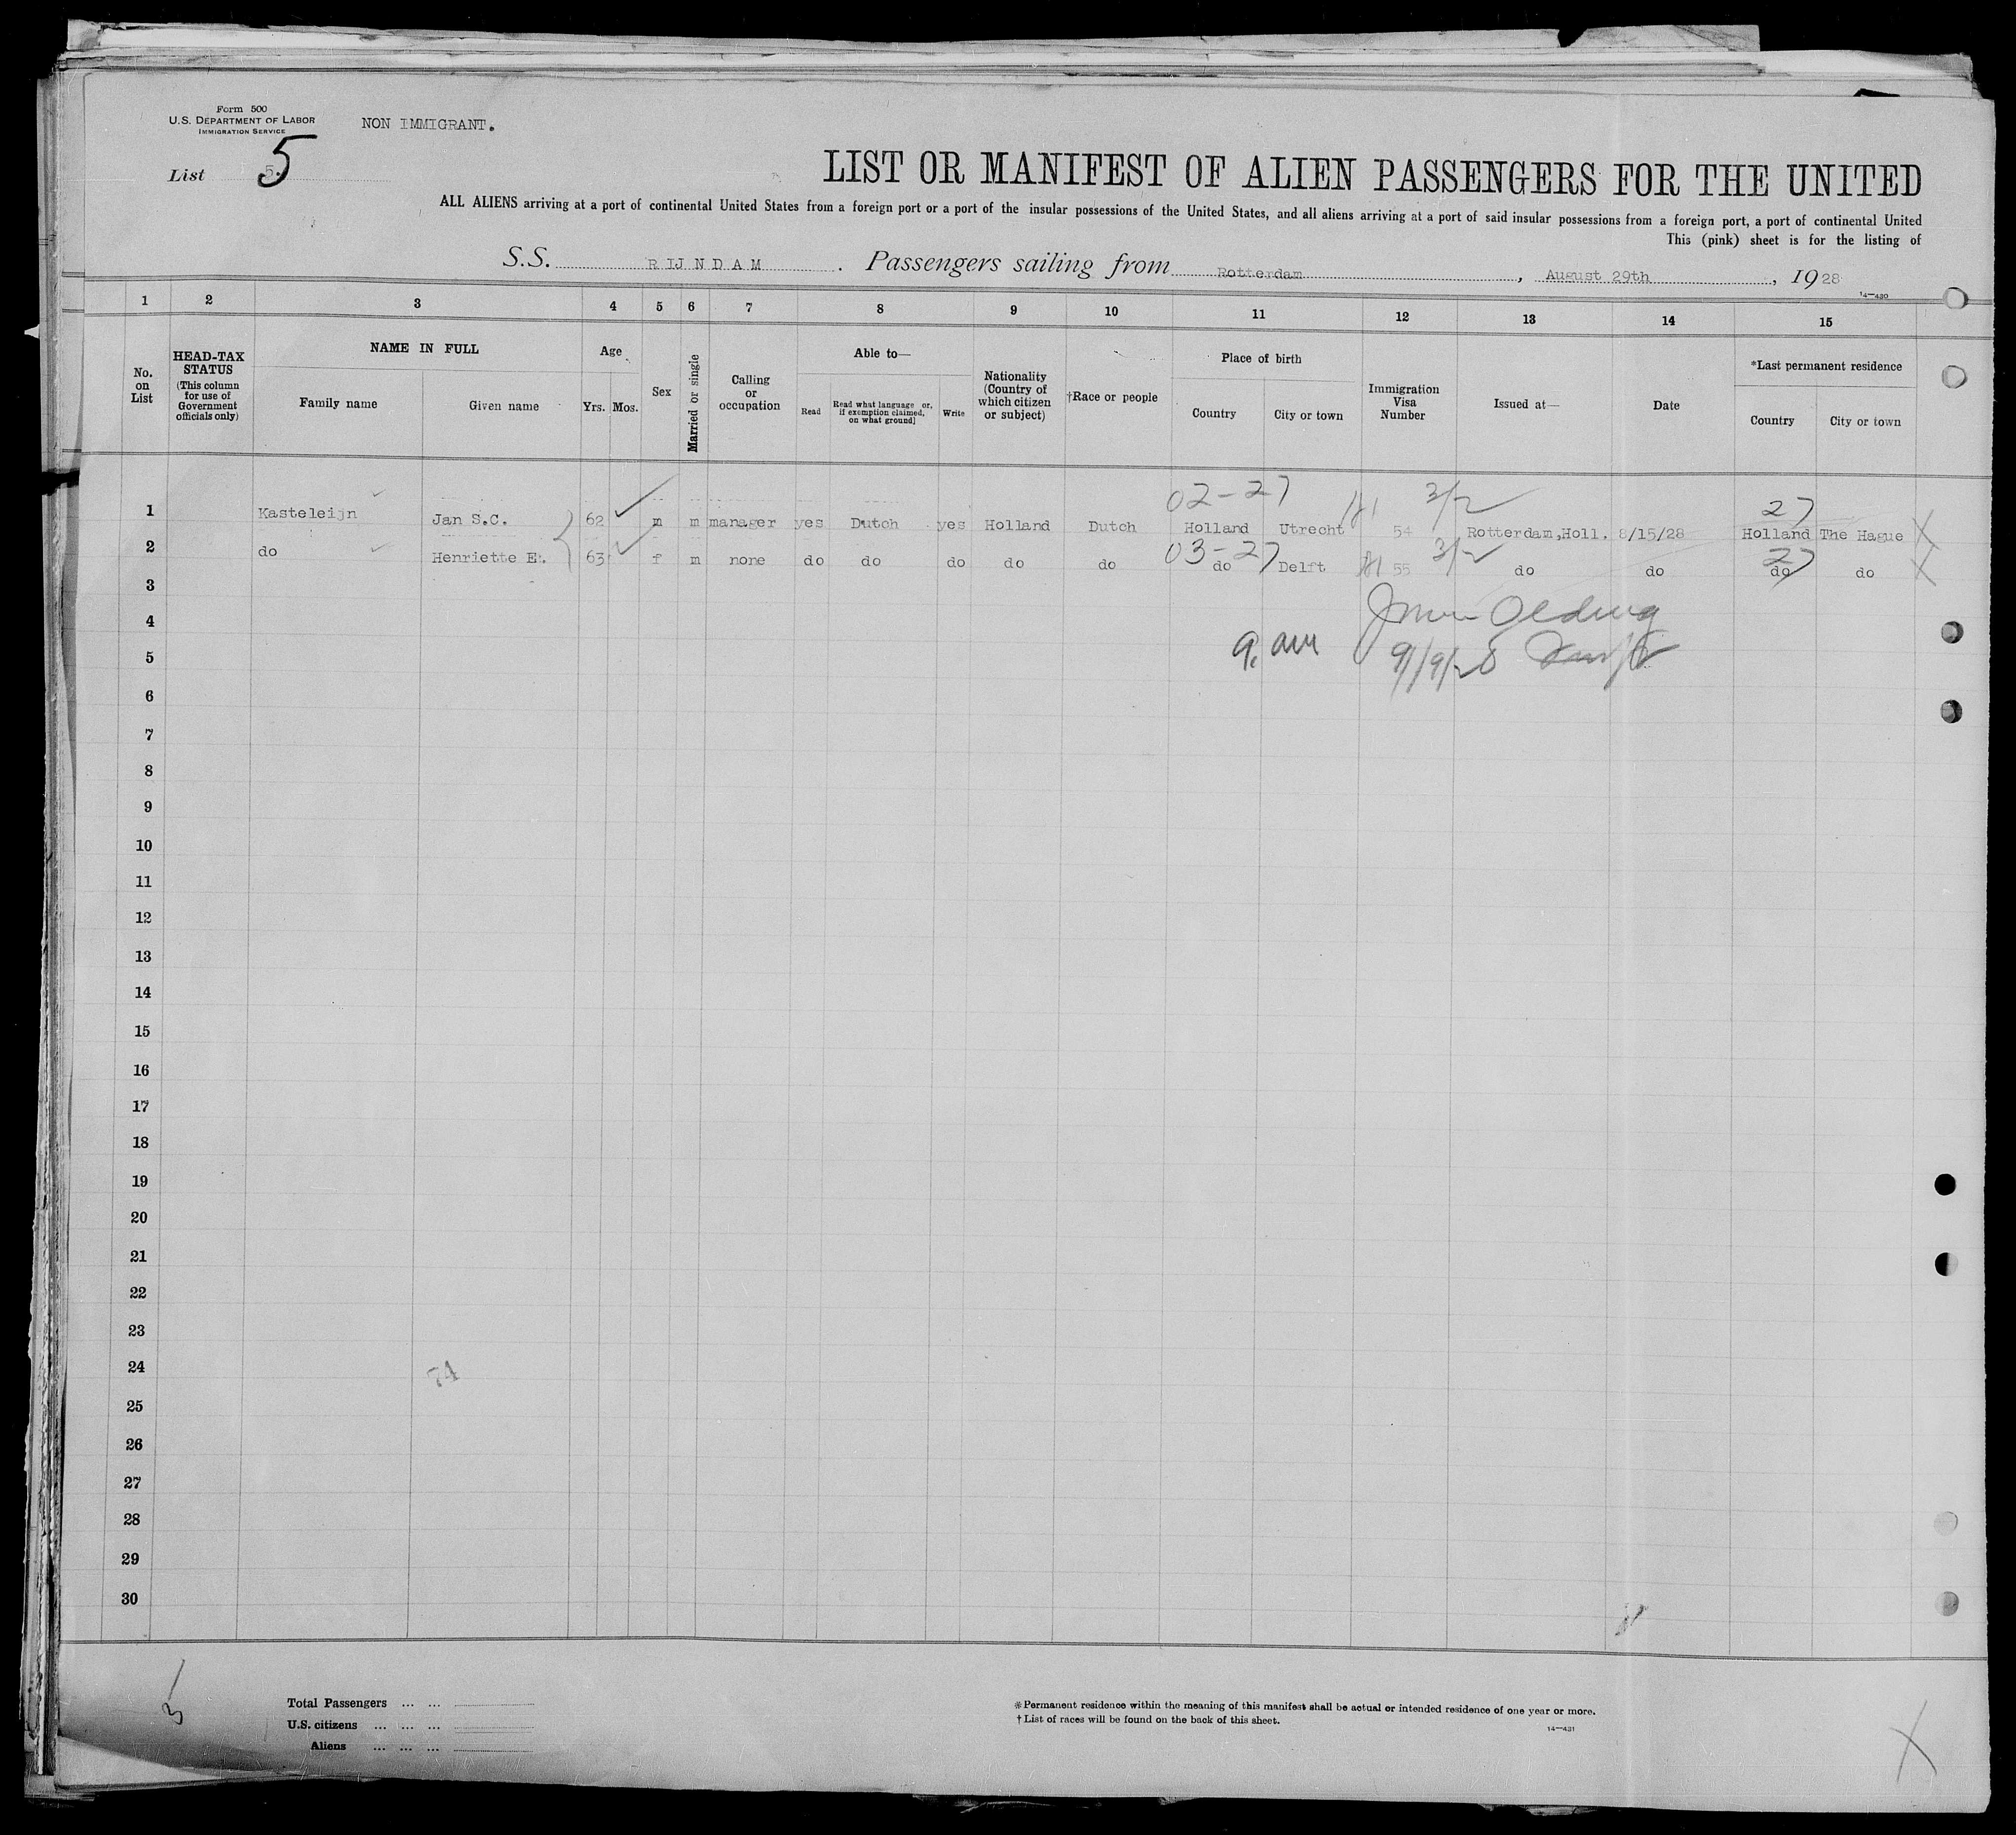 Form 500
U.S. DEPARTMENT OF LABOR
IMMIGRATION SERVICE
NON IMMIGRANT.
List 5. 5
LIST OR MANIFEST OF ALIEN PASSENGERS FOR THE UNITED
ALL ALIENS arriving at a port of continental United States from a foreign port or a port of the insular possessions of the United States, and all aliens arriving at a port of said insular possessions from a foreign port, a port of continental United
This (pink) sheet is for the listing of
S.S. RIJNDAM . Passengers sailing from Rotterdam , August 29th , 1928
14—430
1 2 3 4 5 6 7 8 9 10 11 12 13 14 15
No. on List
HEAD-TAX STATUS (This column for use of Government officials only)
NAME IN FULL
Family name Given name
Age
Yrs. Mos.
Sex
Married or single
Calling or occupation
Able to—
Read Read what language [or, if exemption claimed, on what ground] Write
Nationality (Country of which citizen or subject)
†Race or people
Place of birth
Country City or town
Immigration Visa Number
Issued at—
Date
*Last permanent residence
Country City or town
02-27 3/2 27
1 Kasteleijn Jan S.C. 62 m m manager yes Dutch yes Holland Dutch Holland Utrecht 54 Rotterdam,Holl. 8/15/28 Holland The Hague X
03-27 3/2 27
2 do Henriette E. 63 f m none do do do do do do Delft 55 do do do do X
3
4
5 9. am 9/9/28
6
7
8
9
10
11
12
13
14
15
16
17
18
19
20
21
22
23
24 74
25
26
27
28
29
30
Total Passengers ... ...
U.S. citizens ... ... ...
Aliens ... ... ...
*Permanent residence within the meaning of this manifest shall be actual or intended residence of one year or more.
†List of races will be found on the back of this sheet.
14—431
X